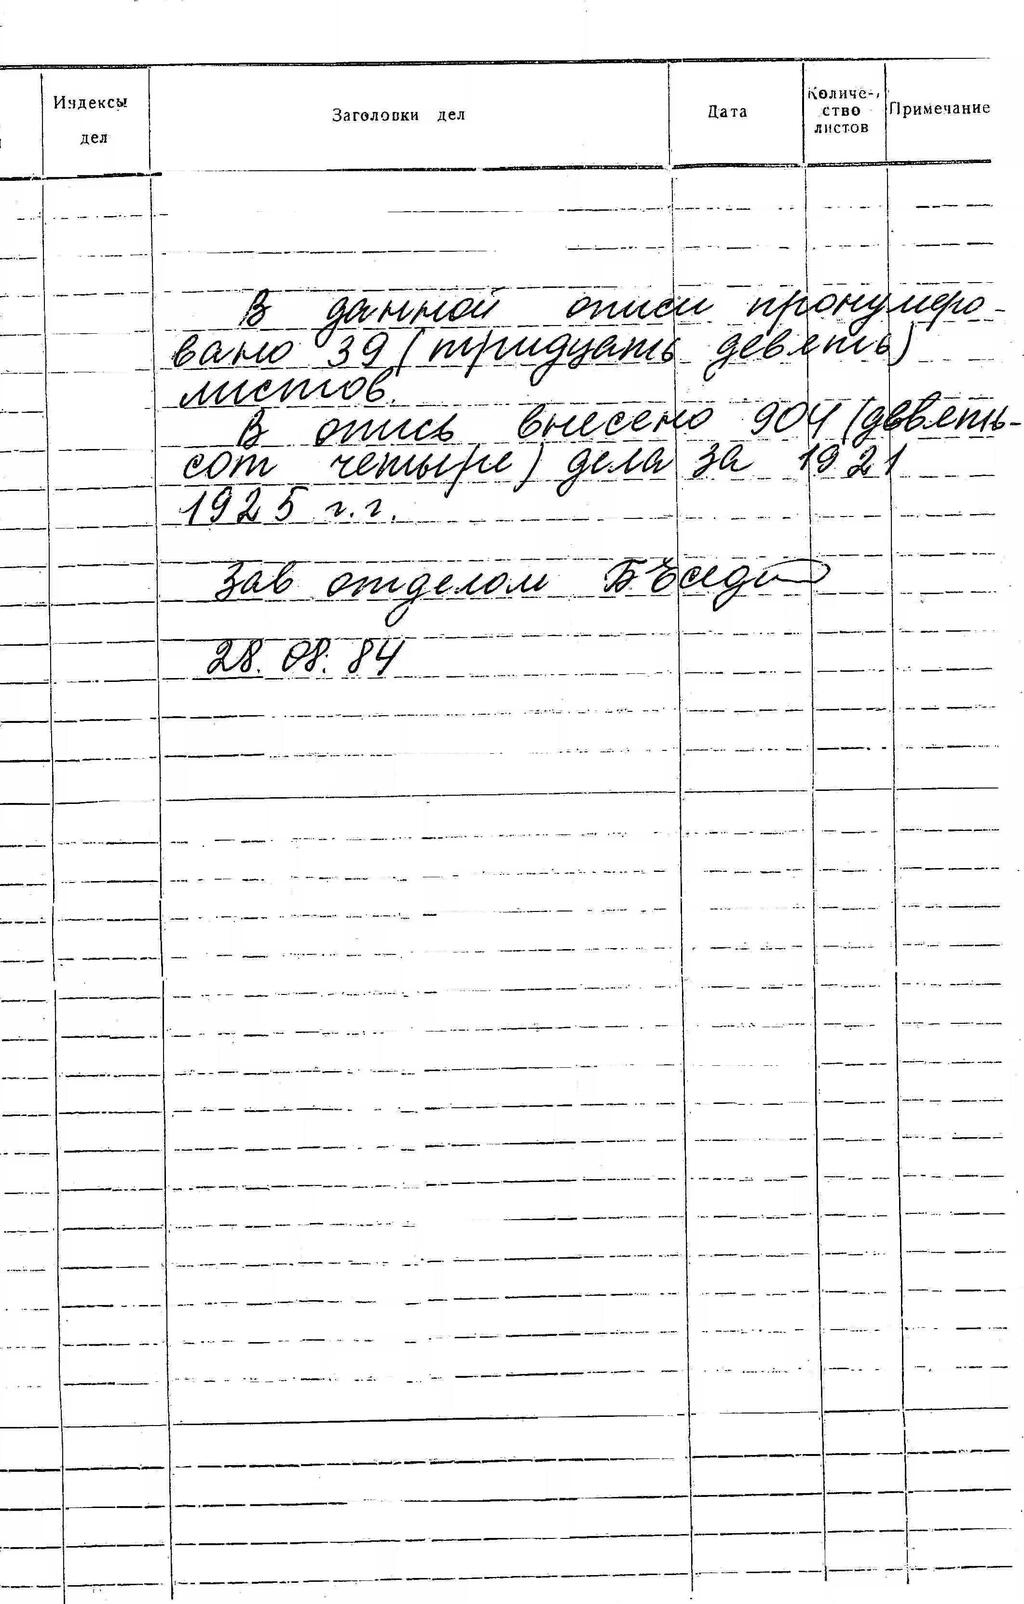 Индексы дел
Заголовки дел
Дата
Количество листов
Примечание
В данной описи пронумеро-
вано 39 (тридцать девять)
листов.
В опись внесено 904 (девять-
сот четыре) дела за 1921
1925 г.г.
Зав отделом
28.08.84